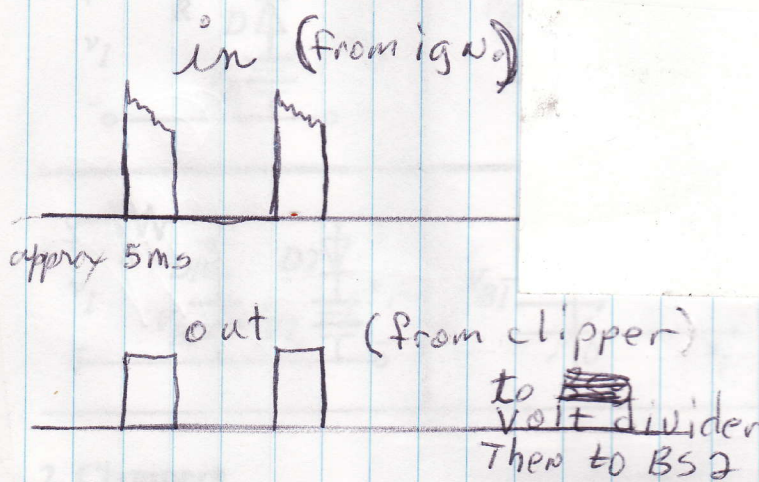 in (from ign.)
approx 5ms
out (from clipper)
to
volt divider
Then to BS2